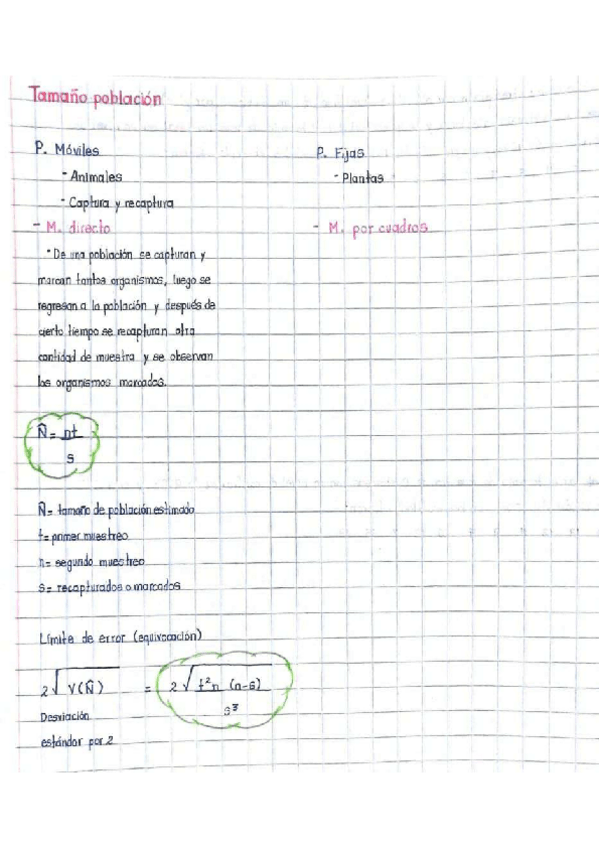 Tamaño población
P. Móviles
- Animales
- Captura y recaptura
- M. directo
- De una población se capturan y
marcan tantos organismos, luego se
regresan a la población y después de
cierto tiempo se recapturan otra
cantidad de muestra y se observan
los organismos marcados.
N̂ = nt
s
N̂= tamaño de población estimado
t= primer muestreo
n= segundo muestreo
s= recapturados o marcados
Límite de error (equivocación)
2√V(N̂) = 2√t²n (n-s)
s³
Desviación
estándar por 2
P. Fijas
- Plantas
- M. por cuadros